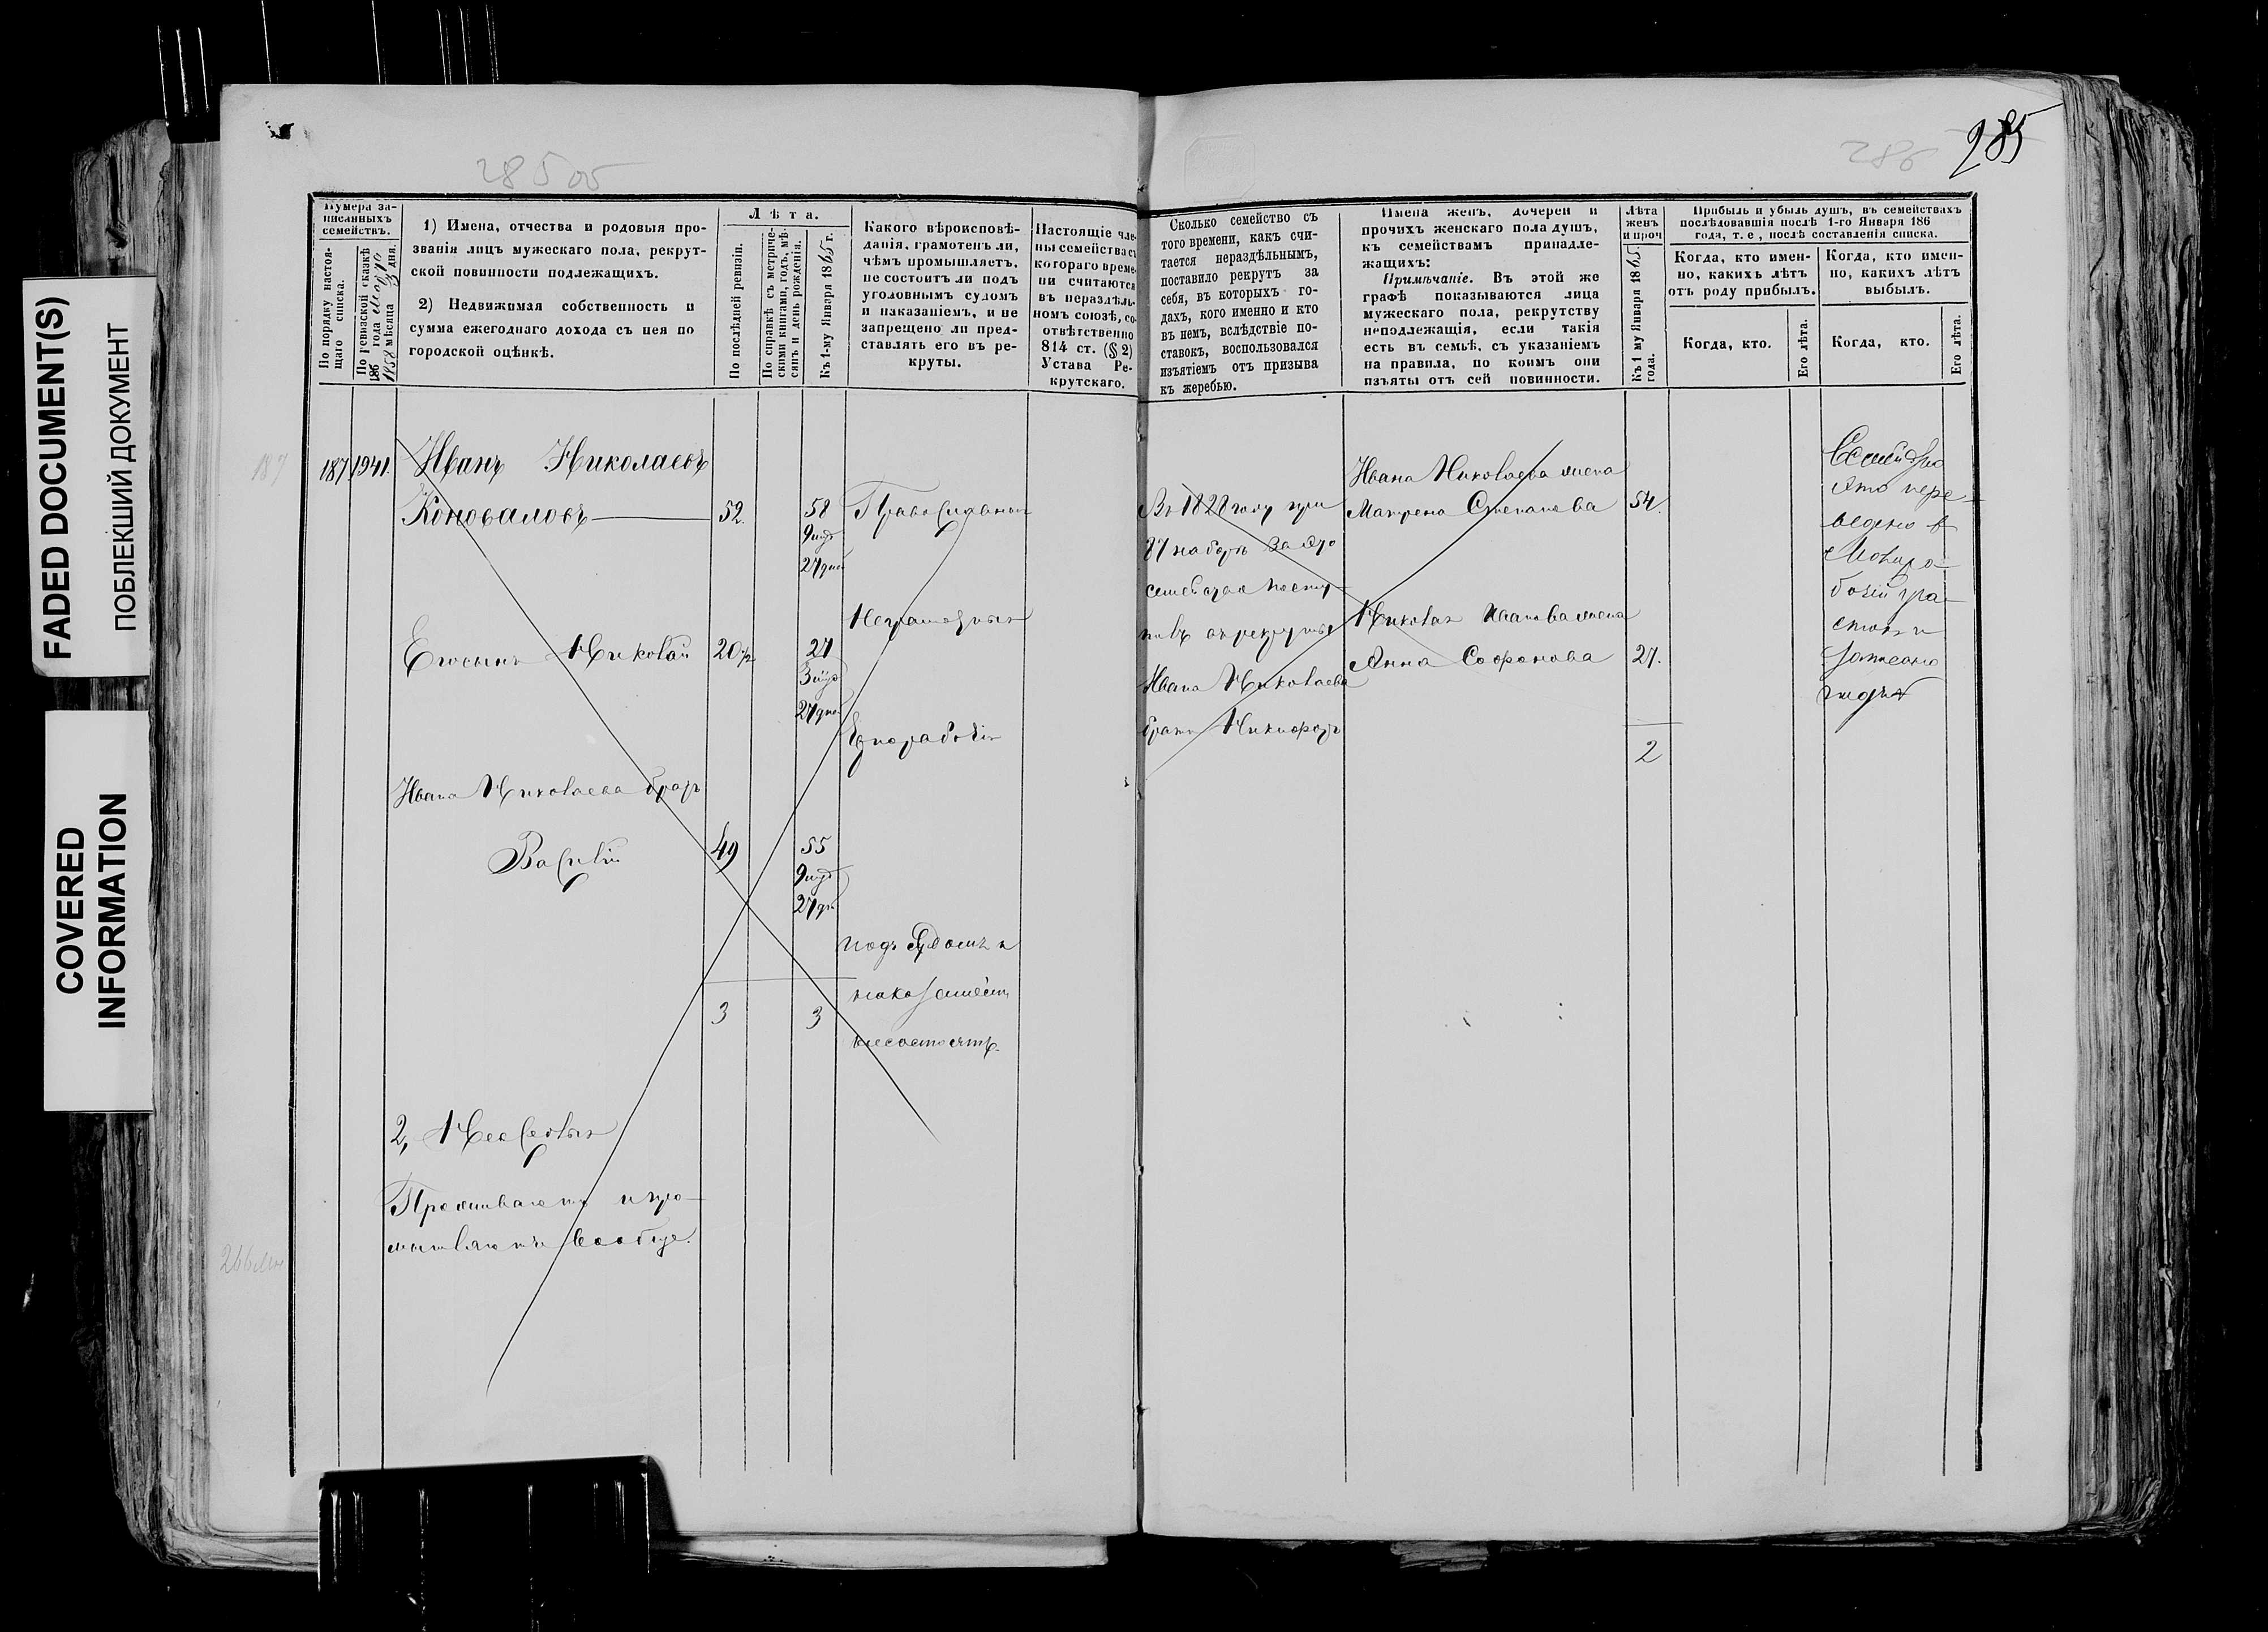 FADED DOCUMENT(S)
ПОБЛЕКШИЙ ДОКУМЕНТ
COVERED
INFORMATION
285
286
285
Нумера за-
писанныхъ
семействъ.
По порядку настоя-
щаго списка.
По ревизской сказкѣ
186 года
1858 мѣсяца 3 дня.
1) Имена, отчества и родовыя про-
званія лицъ мужескаго пола, рекрут-
ской повинности подлежащихъ.
2) Недвижимая собственность и
сумма ежегоднаго дохода съ нея по
городской оцѣнкѣ.
Лѣта.
По послѣдней ревизіи.
По справкѣ съ метриче-
скими книгами, годъ, мѣ-
сяцъ и день рожденія.
Къ 1-му Января 1865 г.
Какого вѣроисповѣ-
данія, грамотенъ ли,
чѣмъ промышляетъ,
не состоитъ ли подъ
уголовнымъ судомъ
и наказаніемъ, и не
запрещено ли пред-
ставлять его въ ре-
круты.
Настоящіе чле-
ны семейства съ
котораго време-
ни считаются
въ нераздѣль-
номъ союзѣ, со-
отвѣтственно
814 ст. (§ 2)
Устава Ре-
крутскаго.
187
187
1941.
Иванъ Николаевъ
Коноваловъ
52.
58
9 мѣс
27 дней
Православный
Неграмотный
Его сынъ Николай
20½
27
3 мѣс
27 дней
Чернорабочій
Ивана Николаева братъ
Василій
49
55
9 мѣс
27 дн
подъ судомъ и
наказаніемъ
несостоятъ.
3
3
2,
Проживаютъ и про-
мышляютъ вообще.
Сколько семейство съ
того времени, какъ счи-
тается нераздѣльнымъ,
поставило рекрутъ за
себя, въ которыхъ го-
дахъ, кого именно и кто
въ немъ, вслѣдствіе по-
ставокъ, воспользовался
изъятіемъ отъ призыва
къ жеребью.
Имена женъ, дочерей и
прочихъ женскаго пола душъ,
къ семействамъ принадле-
жащихъ:
Примѣчаніе. Въ этой же
графѣ показываются лица
мужескаго пола, рекрутству
неподлежащія, если такія
есть въ семьѣ, съ указаніемъ
на правила, по коимъ они
изъяты отъ сей повинности.
Лѣта
женъ
и проч
Къ 1 му Января 1865
года.
Прибыль и убыль душъ, въ семействахъ
послѣдовавшія послѣ 1-го Января 186
года, т. е, послѣ составленія списка.
Когда, кто имен-
но, какихъ лѣтъ
отъ роду прибылъ.
Когда, кто.
Его лѣта.
Когда, кто имен-
но, какихъ лѣтъ
выбылъ.
Когда, кто.
Его лѣта.
Въ 1828 году при
87 наборѣ за это
семейство посту-
пилъ въ рекруты
Ивана Николаева
братъ Никифоръ
Ивана Николаева жена
Матрена Степанова
54.
Николая Иванова жена
Анна Софронова
27.
2
Семейство
это пере-
ведено въ